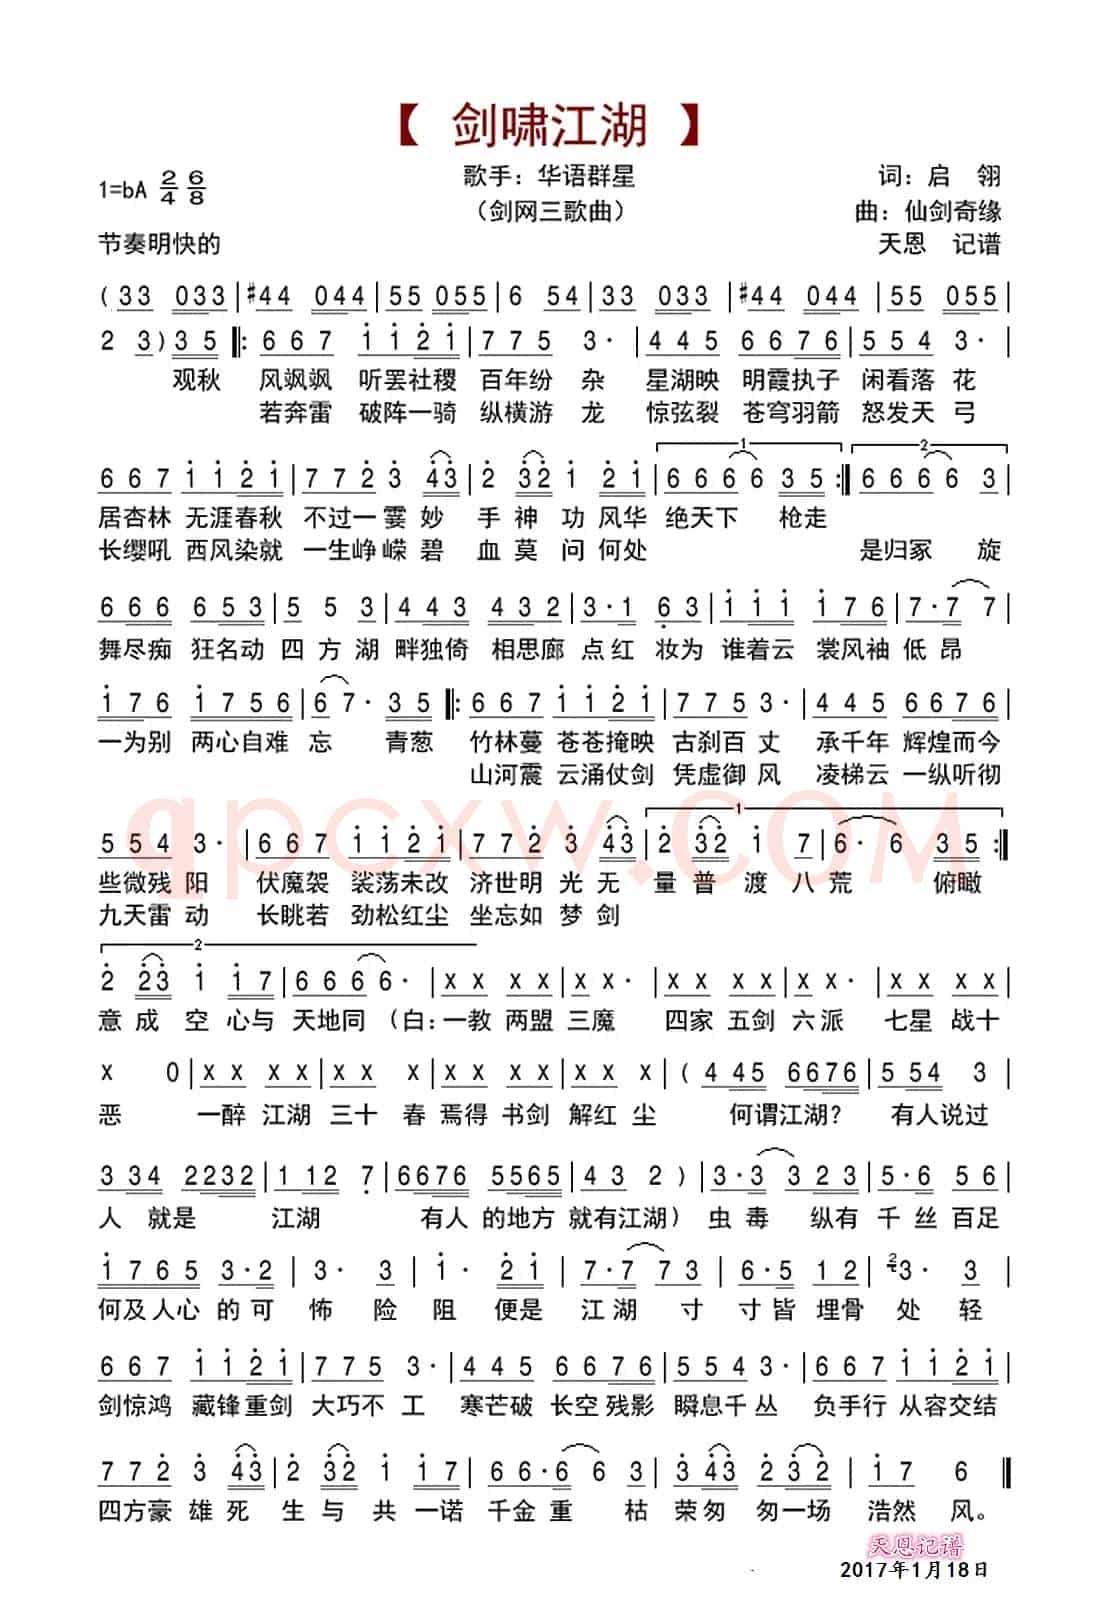 【 剑啸江湖 】
1=bA 2/4 6/8 歌手：华语群星 词：启 翎
（剑网三歌曲） 曲：仙剑奇缘
节奏明快的 天恩 记谱
( 33 033 | #44 044 | 55 055 | 6 54 | 33 033 | #44 044 | 55 055 |
2 3 ) 35 ‖: 667 1121 | 775 3· | 445 6676 | 554 3· |
观秋 风飒飒 听罢社稷 百年纷 杂 星湖映 明霞执子 闲看落 花
若奔雷 破阵一骑 纵横游 龙 惊弦裂 苍穹羽箭 怒发天 弓
1 2
667 1121 | 772 3 43 | 2 32 1 21 | 6666 35 :‖ 6666 3 |
居杏林 无涯春秋 不过一霎 妙 手 神 功 风华 绝天下 枪走
长缨吼 西风染就 一生峥嵘 碧 血 莫 问 何处 是归冢 旋
666 653 | 5 5 3 | 443 432 | 3·1 63 | 111 176 | 7·7 7 |
舞尽痴 狂名动 四 方 湖 畔独倚 相思廊 点红 妆为 谁着云 裳风袖 低 昂
176 1756 | 67· 35 ‖: 667 1121 | 7753· | 445 6676 |
一为别 两心自难 忘 青葱 竹林蔓 苍苍掩映 古刹百 丈 承千年 辉煌而今
山河震 云涌仗剑 凭虚御 风 凌梯云 一纵听彻
1
554 3· | 667 1121 | 772 3 43 | 2 32 1 7 | 6· 6 35 :‖
些微残 阳 伏魔袈 裟荡未改 济世明 光 无 量 普 渡 八 荒 俯瞰
九天雷 动 长眺若 劲松红尘 坐忘如 梦 剑
2
2 23 1 17 | 6666· | x x x x | x x x· | x x x x | x x x· | x x x x |
意 成 空 心与 天地同 （白：一教 两盟 三魔 四家 五剑 六派 七星 战十
x 0 | x x x x | x x x | x x x x | x x x | ( 445 6676 | 554 3 |
恶 一醉 江湖 三十 春 焉得 书剑 解红 尘 何谓江湖？ 有人说过
3 34 2232 | 1 12 7 | 6676 5565 | 43 2 ) | 3·3 323 | 5·6 56 |
人 就是 江湖 有人 的地方 就有江湖） 虫 毒 纵有 千 丝 百足
1765 3·2 | 3· 3 | 1· 21 | 7·7 73 | 6·5 12 | 2 3· 3 |
何及人心 的 可 怖 险 阻 便是 江 湖 寸 寸 皆 埋骨 处 轻
667 1121 | 775 3· | 445 6676 | 554 3· | 667 1121 |
剑惊鸿 藏锋重剑 大巧不 工 寒芒破 长空残影 瞬息千 丛 负手行 从容交结
772 3 43 | 2 32 1 17 | 66·6 63 | 3 43 2 32 | 1·7 6 ‖
四方豪 雄 死 生 与 共 一诺 千金重 枯 荣匆 匆一场 浩然 风。
天恩记谱
2017年1月18日
qpcxw.COM